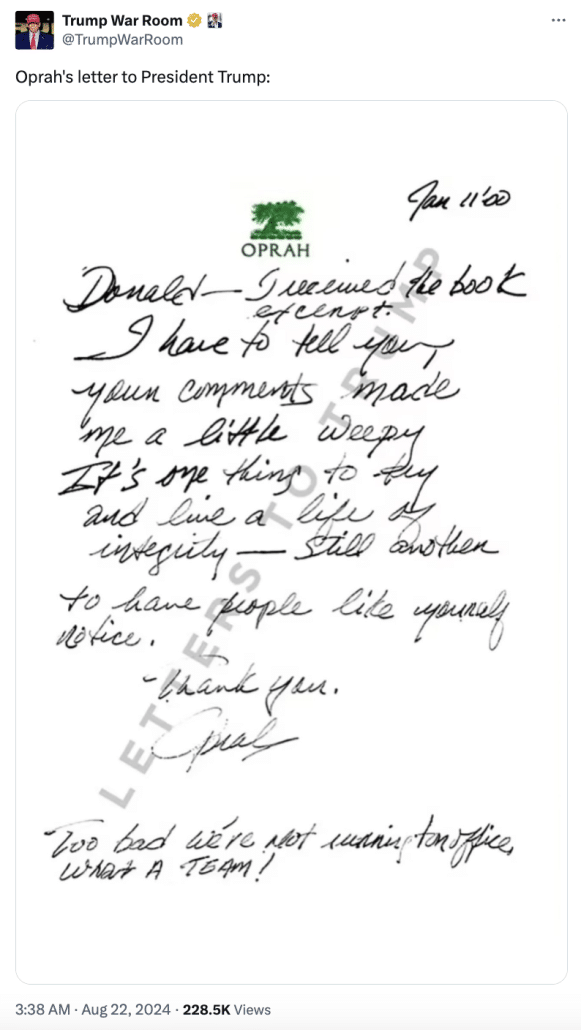 Trump War Room
@TrumpWarRoom
Oprah's letter to President Trump:
Jan 11'00
OPRAH
Donald— I received the book
excerpt.
I have to tell you,
your comments made
me a little weepy
It's one thing to try
and live a life of
integrity — still another
to have people like yourself
notice.
-Thank you.
Oprah
Too bad we're not running for office,
WHAT A TEAM!
LETTERS TO TRUMP
3:38 AM · Aug 22, 2024 · 228.5K Views